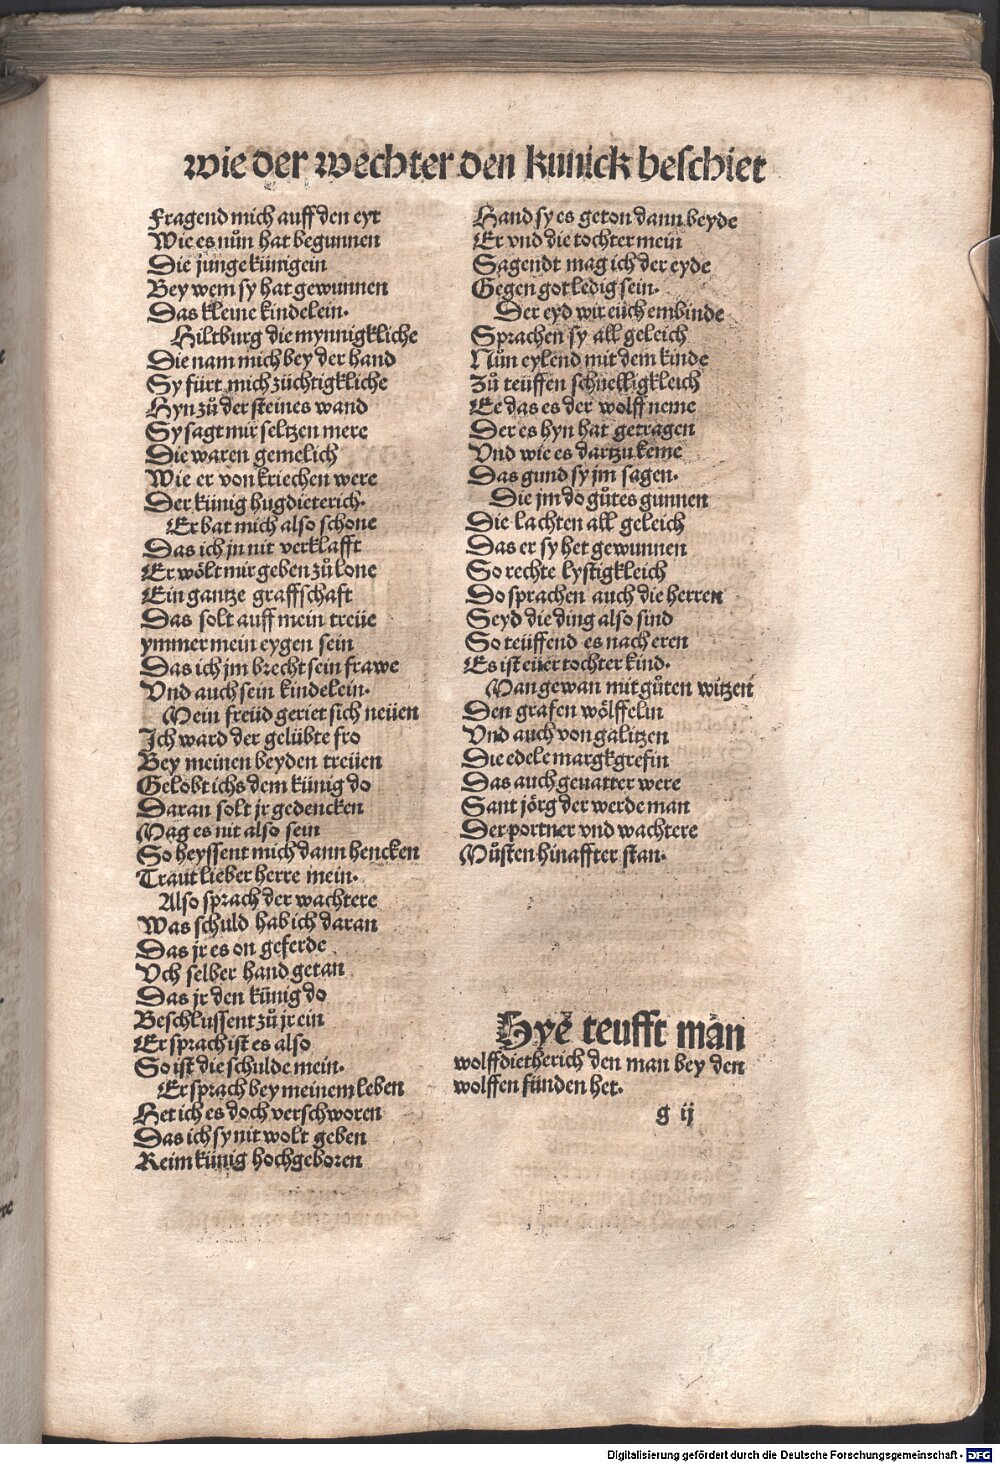 wie der wechter den kunick beschiet
Fragend mich auff den eyt
Wie es nůn hat begunnen
Die junge künigein
Bey wem sy hat gewunnen
Das kleine kindelein.
Hiltburg die mynnigkliche
Die nam mich bey der hand
Sy fürt mich züchtigkliche
Hyn zů der steines wand
Sy sagt mir seltzen mere
Die waren gemelich
Wie er von kriechen were
Der künig hugdieterich.
Er bat mich also schone
Das ich jn nit verklafft
Er wölt mir geben zů lone
Ein gantze graffschaft
Das solt auff mein treüe
ymmer mein eygen sein
Das ich jm brecht sein frawe
Vnd auch sein kindelein.
Mein freüd geriet sich neüen
Ich ward der gelübte fro
Bey meinen beyden treüen
Gelobt ichs dem künig do
Daran solt jr gedencken
Mag es nit also sein
So heyssent mich dann hencken
Traut lieber herre mein.
Also sprach der wachtere
Was schuld hab ich daran
Das jr es on geferde
Vch selber hand getan
Das jr den künig do
Beschlussent zů jr ein
Er sprach ist es also
So ist die schulde mein.
Er sprach bey meinem leben
Het ich es doch verschworen
Das ich sy nit wolt geben
Keim künig hochgeboren
Hand sy es geton dann beyde
Er vnd die tochter mein
Sagendt mag ich der eyde
Gegen got ledig sein.
Der eyd wir eüch embinde
Sprachen sy all geleich
Nůn eylend mit dem kinde
Zů teüffen schnelligkleich
Ee das es der wolff neme
Der es hyn hat getragen
Vnd wie es dartzu keme
Das gund sy jm sagen.
Die jm do gůtes gunnen
Die lachten all geleich
Das er sy het gewunnen
So rechte lystigkleich
Do sprachen auch die herren
Seyd die ding also sind
So teüffend es nach eren
Es ist eüer tochter kind.
Man gewan mit gůten witzen
Den grafen wölffelin
Vnd auch von galitzen
Die edele margkgrefin
Das auch geuatter were
Sant jörg der werde man
Der portner vnd wachtere
Můsten hinaffter stan.
Hye teufft man
wolffdietherich den man bey den
wolffen fünden het.
g ij
Digitalisierung gefördert durch die Deutsche Forschungsgemeinschaft - DFG